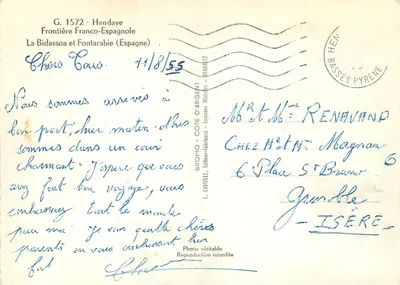 G. 1572 - Hendaye
Frontière Franco-Espagnole
La Bidassoa et Fontarabie (Espagne)
Chers Tous 11/8/55
Nous sommes arrivés à
bon port, hier matin. Nous
sommes dans un coin
charmant. J'espère que vous
avez fait bon voyage, vous
embrasserez tout le monde
pour moi. Je vous quitte chers
parents en vous embrassant bien
fort
Photo véritable
Reproduction interdite
BROMO - COTE D'ARGENT
HEN
BASSES PYRENE
Mr et Mme RENAVAND
CHEZ Mr et Mme Magnan
6 Place St Bruno
Grenoble
- ISÈRE -